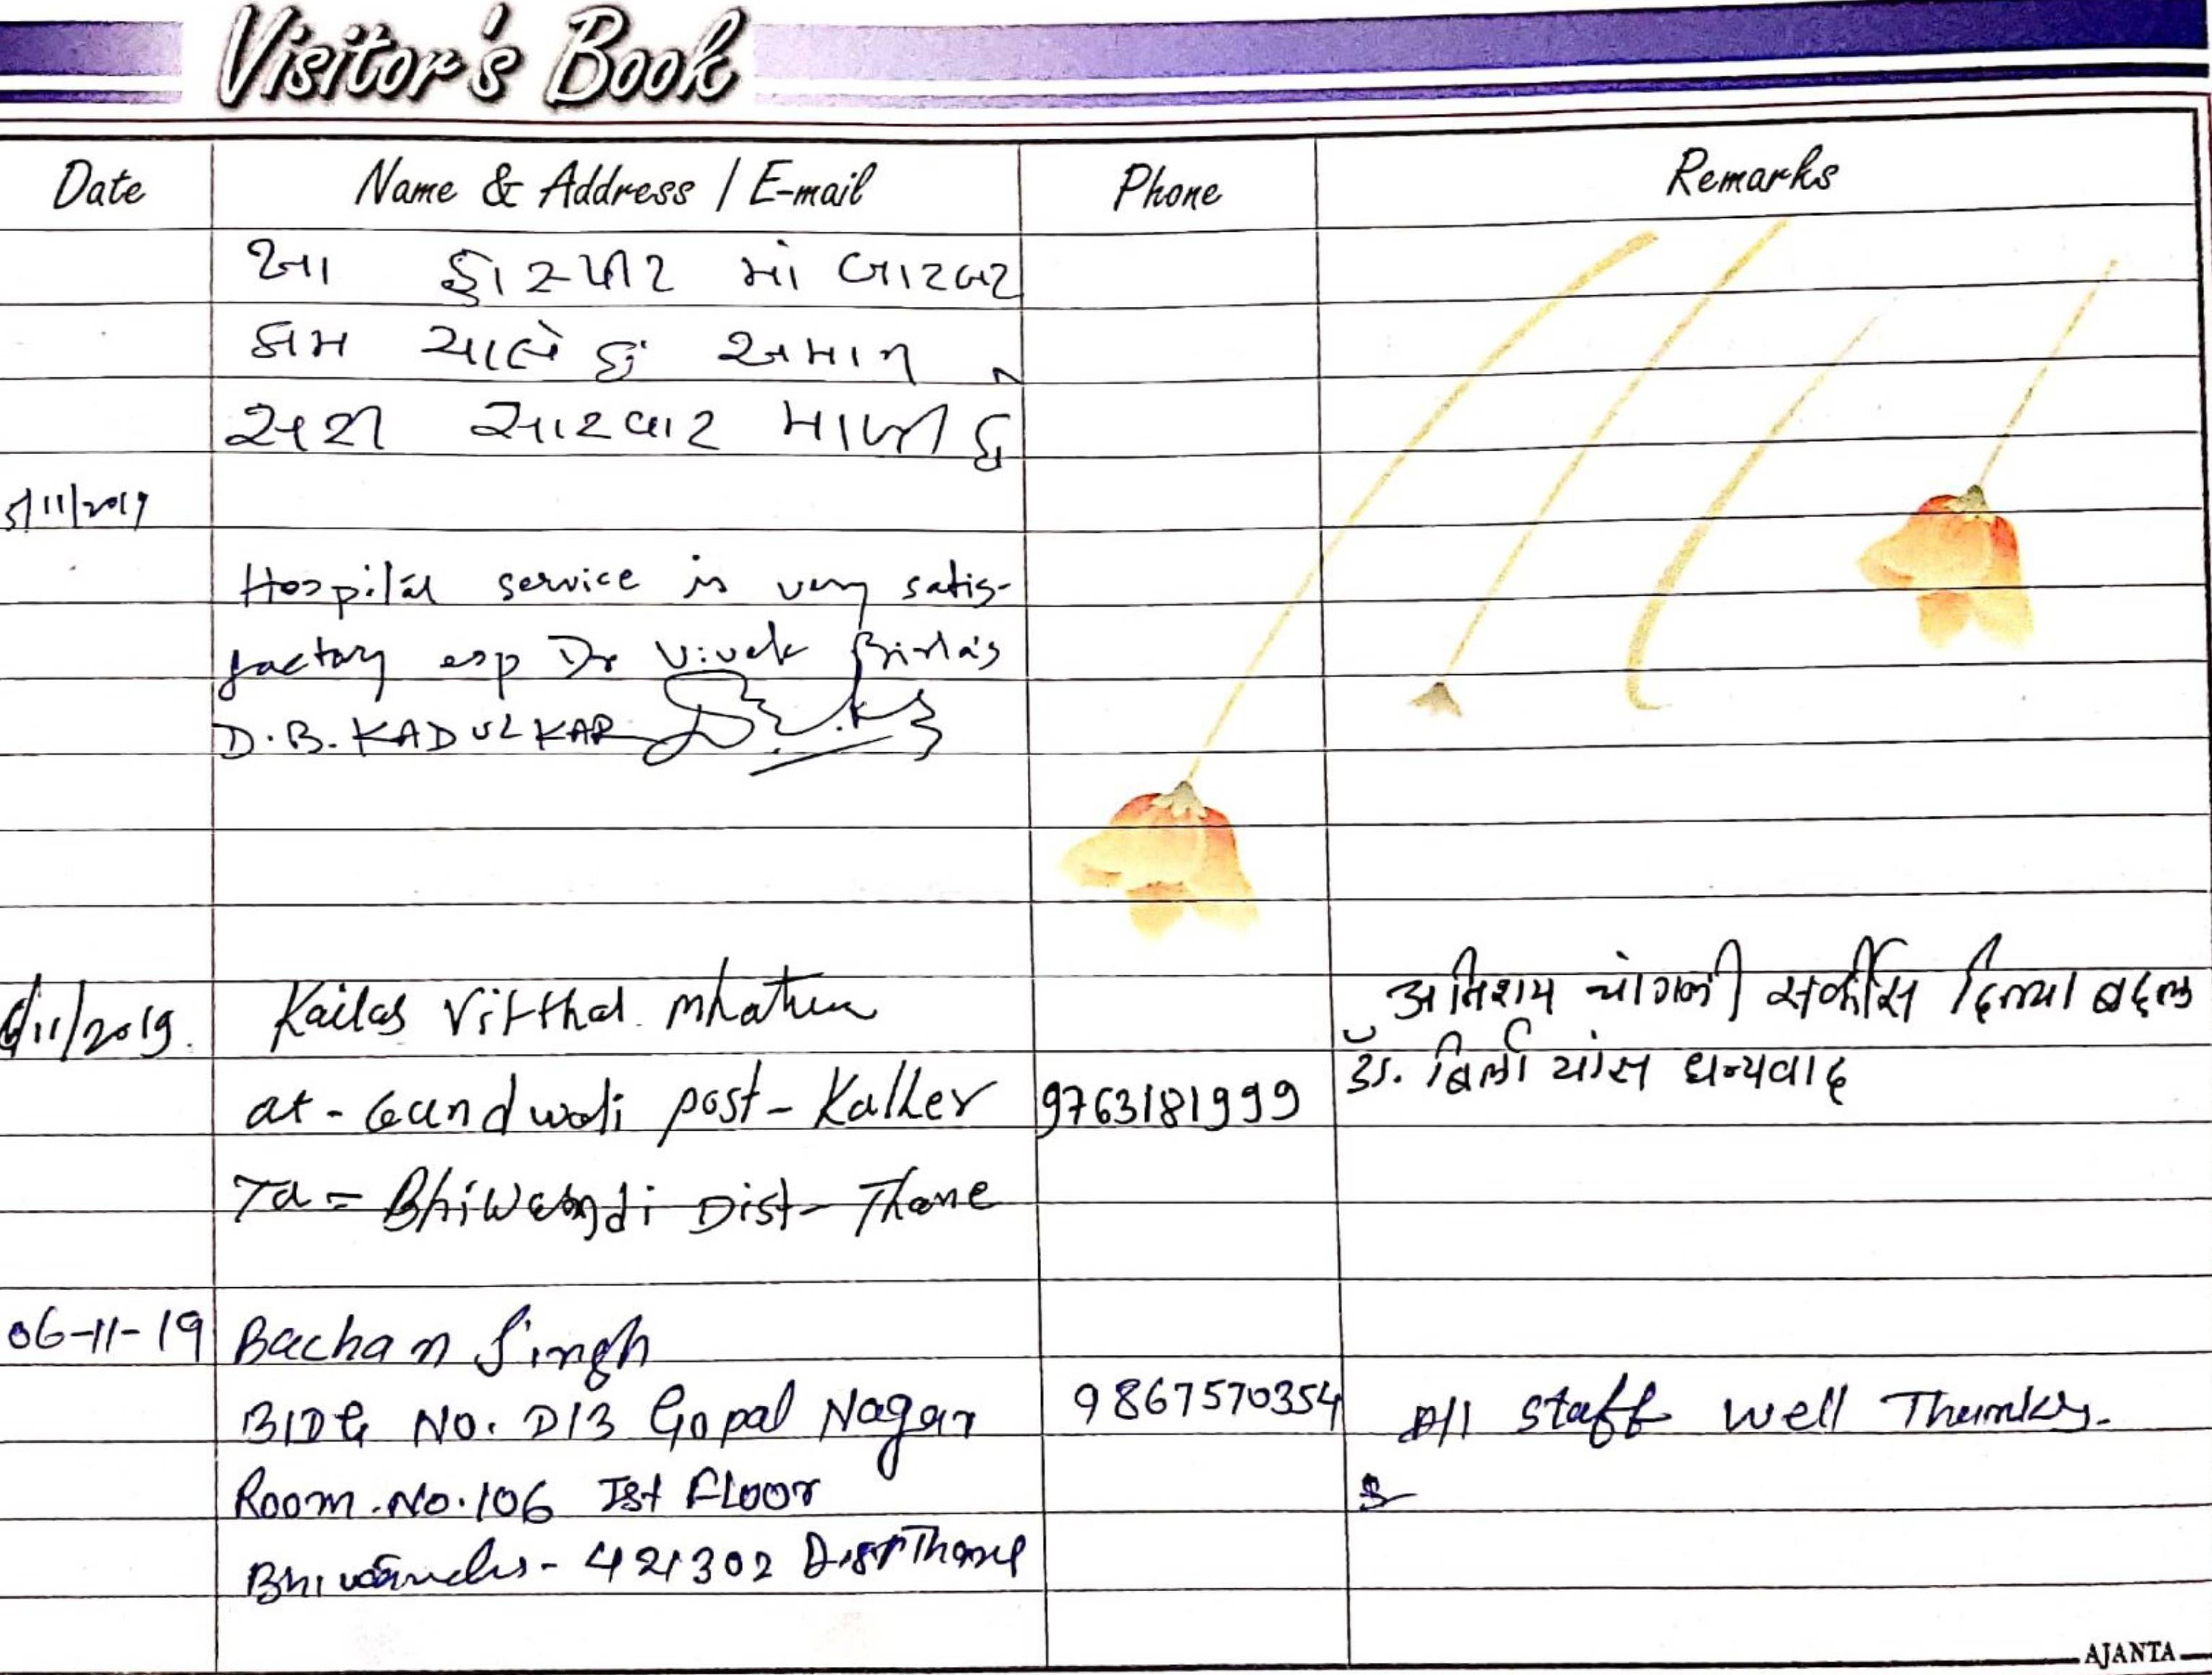 Visitor's Book
Date Name & Address / E-mail Phone Remarks
આ હોસ્પીટ માં બારબર
કામ ચાલે છે અમાન
સારી સારવાર મળી છે
5/11/2019
Hospital service is very satis-
factory esp Dr Vivek Birla's
D.B. KADULKAR
6/11/2019. Kailas Vitthal mhatre अतिशय चांगली सर्व्हीस दिल्या बद्दल
डॉ. बिर्ला यांस धन्यवाद
at - Gundwali post - Kalher 9763181999
Ta = Bhiwandi Dist - Thane
06-11-19 Bachan Singh
BIDG NO. D13 Gopal Nagar 9867570354 All staff well Thanks.
Room.No.106 Ist FLOOR
Bhiwandi - 421302 Dist Thane
AJANTA